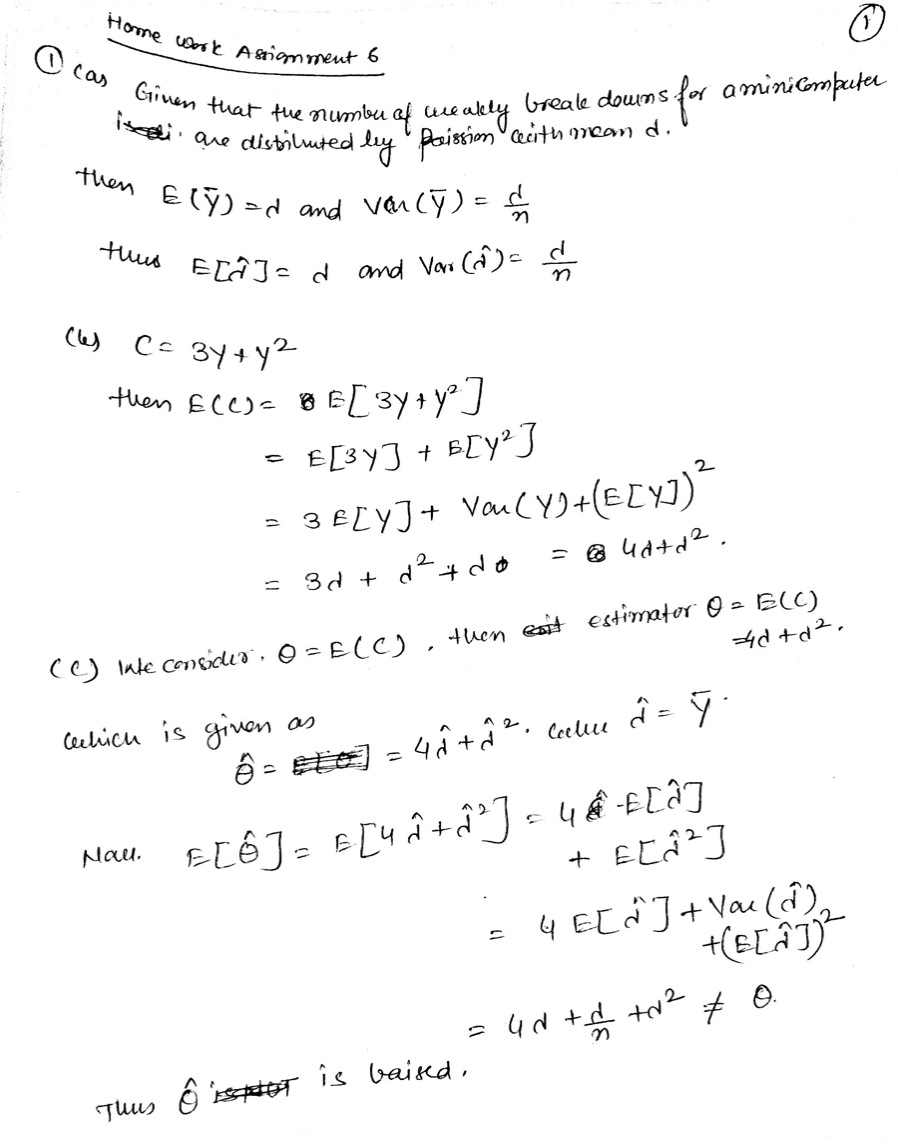 1
Home work Assignment 6
① (a) Given that the number of weakly break downs for a minicomputer
are distributed by Poission with mean d.
then E(Ȳ) = d and Var(Ȳ) = d/n
thus E[d̂] = d and Var(d̂) = d/n
(b) C = 3Y + Y²
then E(C) = E[3Y + Y²]
= E[3Y] + E[Y²]
= 3 E[Y] + Var(Y) + (E[Y])²
= 3d + d² + d = 4d + d².
(c) We consider. θ = E(C), then estimator θ = E(C)
= 4d + d².
which is given as
θ̂ = 4d̂ + d̂². where d̂ = Ȳ.
Now. E[θ̂] = E[4d̂ + d̂²] = 4 · E[d̂]
+ E[d̂²]
= 4 E[d̂] + Var(d̂)
+ (E[d̂])²
= 4d + d/n + d² ≠ θ.
Thus θ̂ is baised.